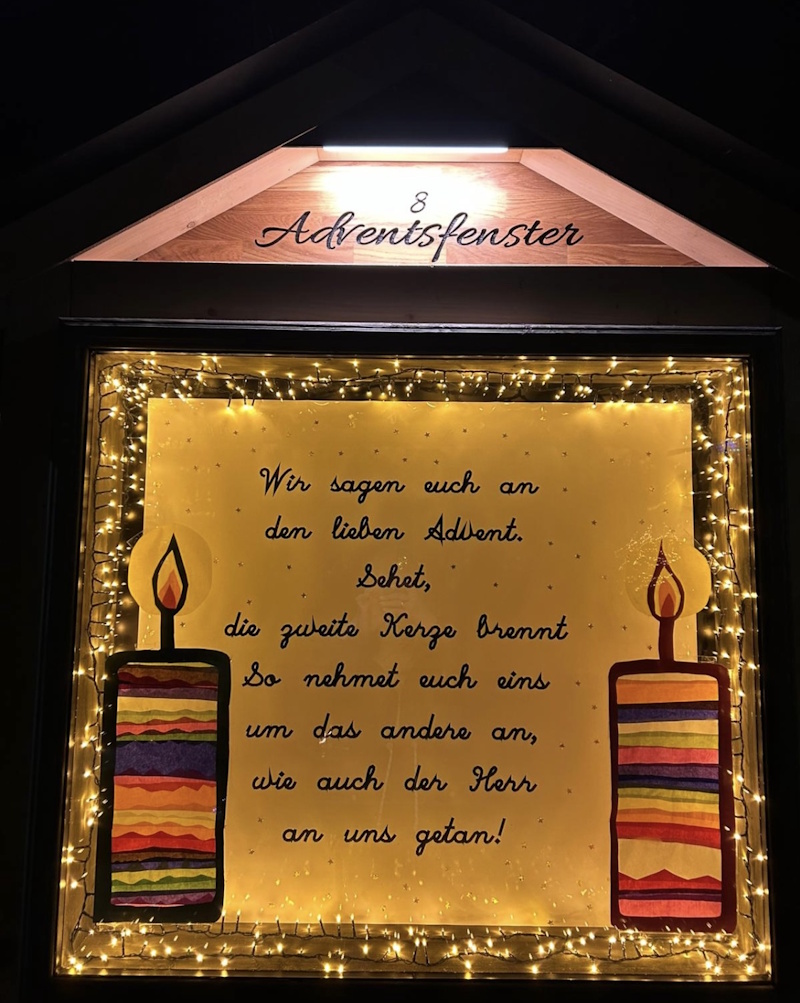 8
Adventsfenster
Wir sagen euch an
den lieben Advent.
Sehet,
die zweite Kerze brennt
So nehmet euch eins
um das andere an,
wie auch der Herr
an uns getan!